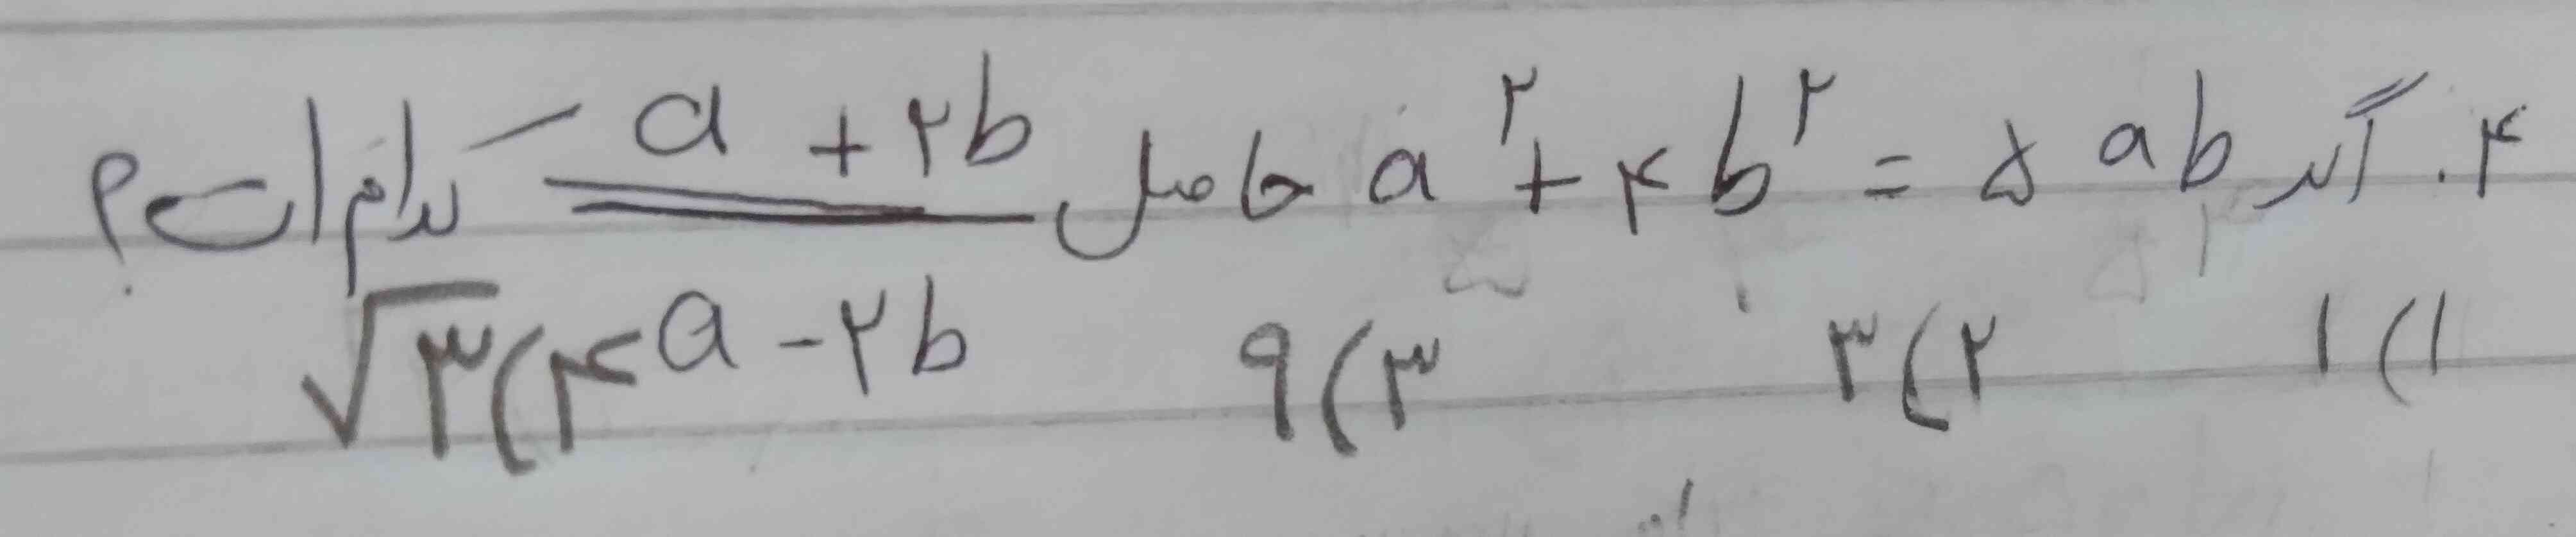 ۴. اگر a² + ۴b² = ۵ab حاصل (a + ۲b)/(a - ۲b) کدام است؟
۱) ۱ ۲) ۳ ۳) ۹ ۴) √۳